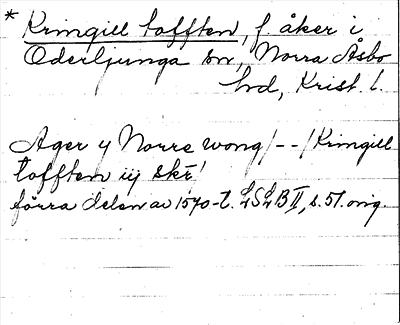 * Kringill tofften, f. åker i
Oderljunga sn, Norra Åsbo
hd, Krist. l.
Ager y Norre wong/--/Kringill
tofften iij skr!
förra delen av 1570-t. LSLB II, s. 51. orig.